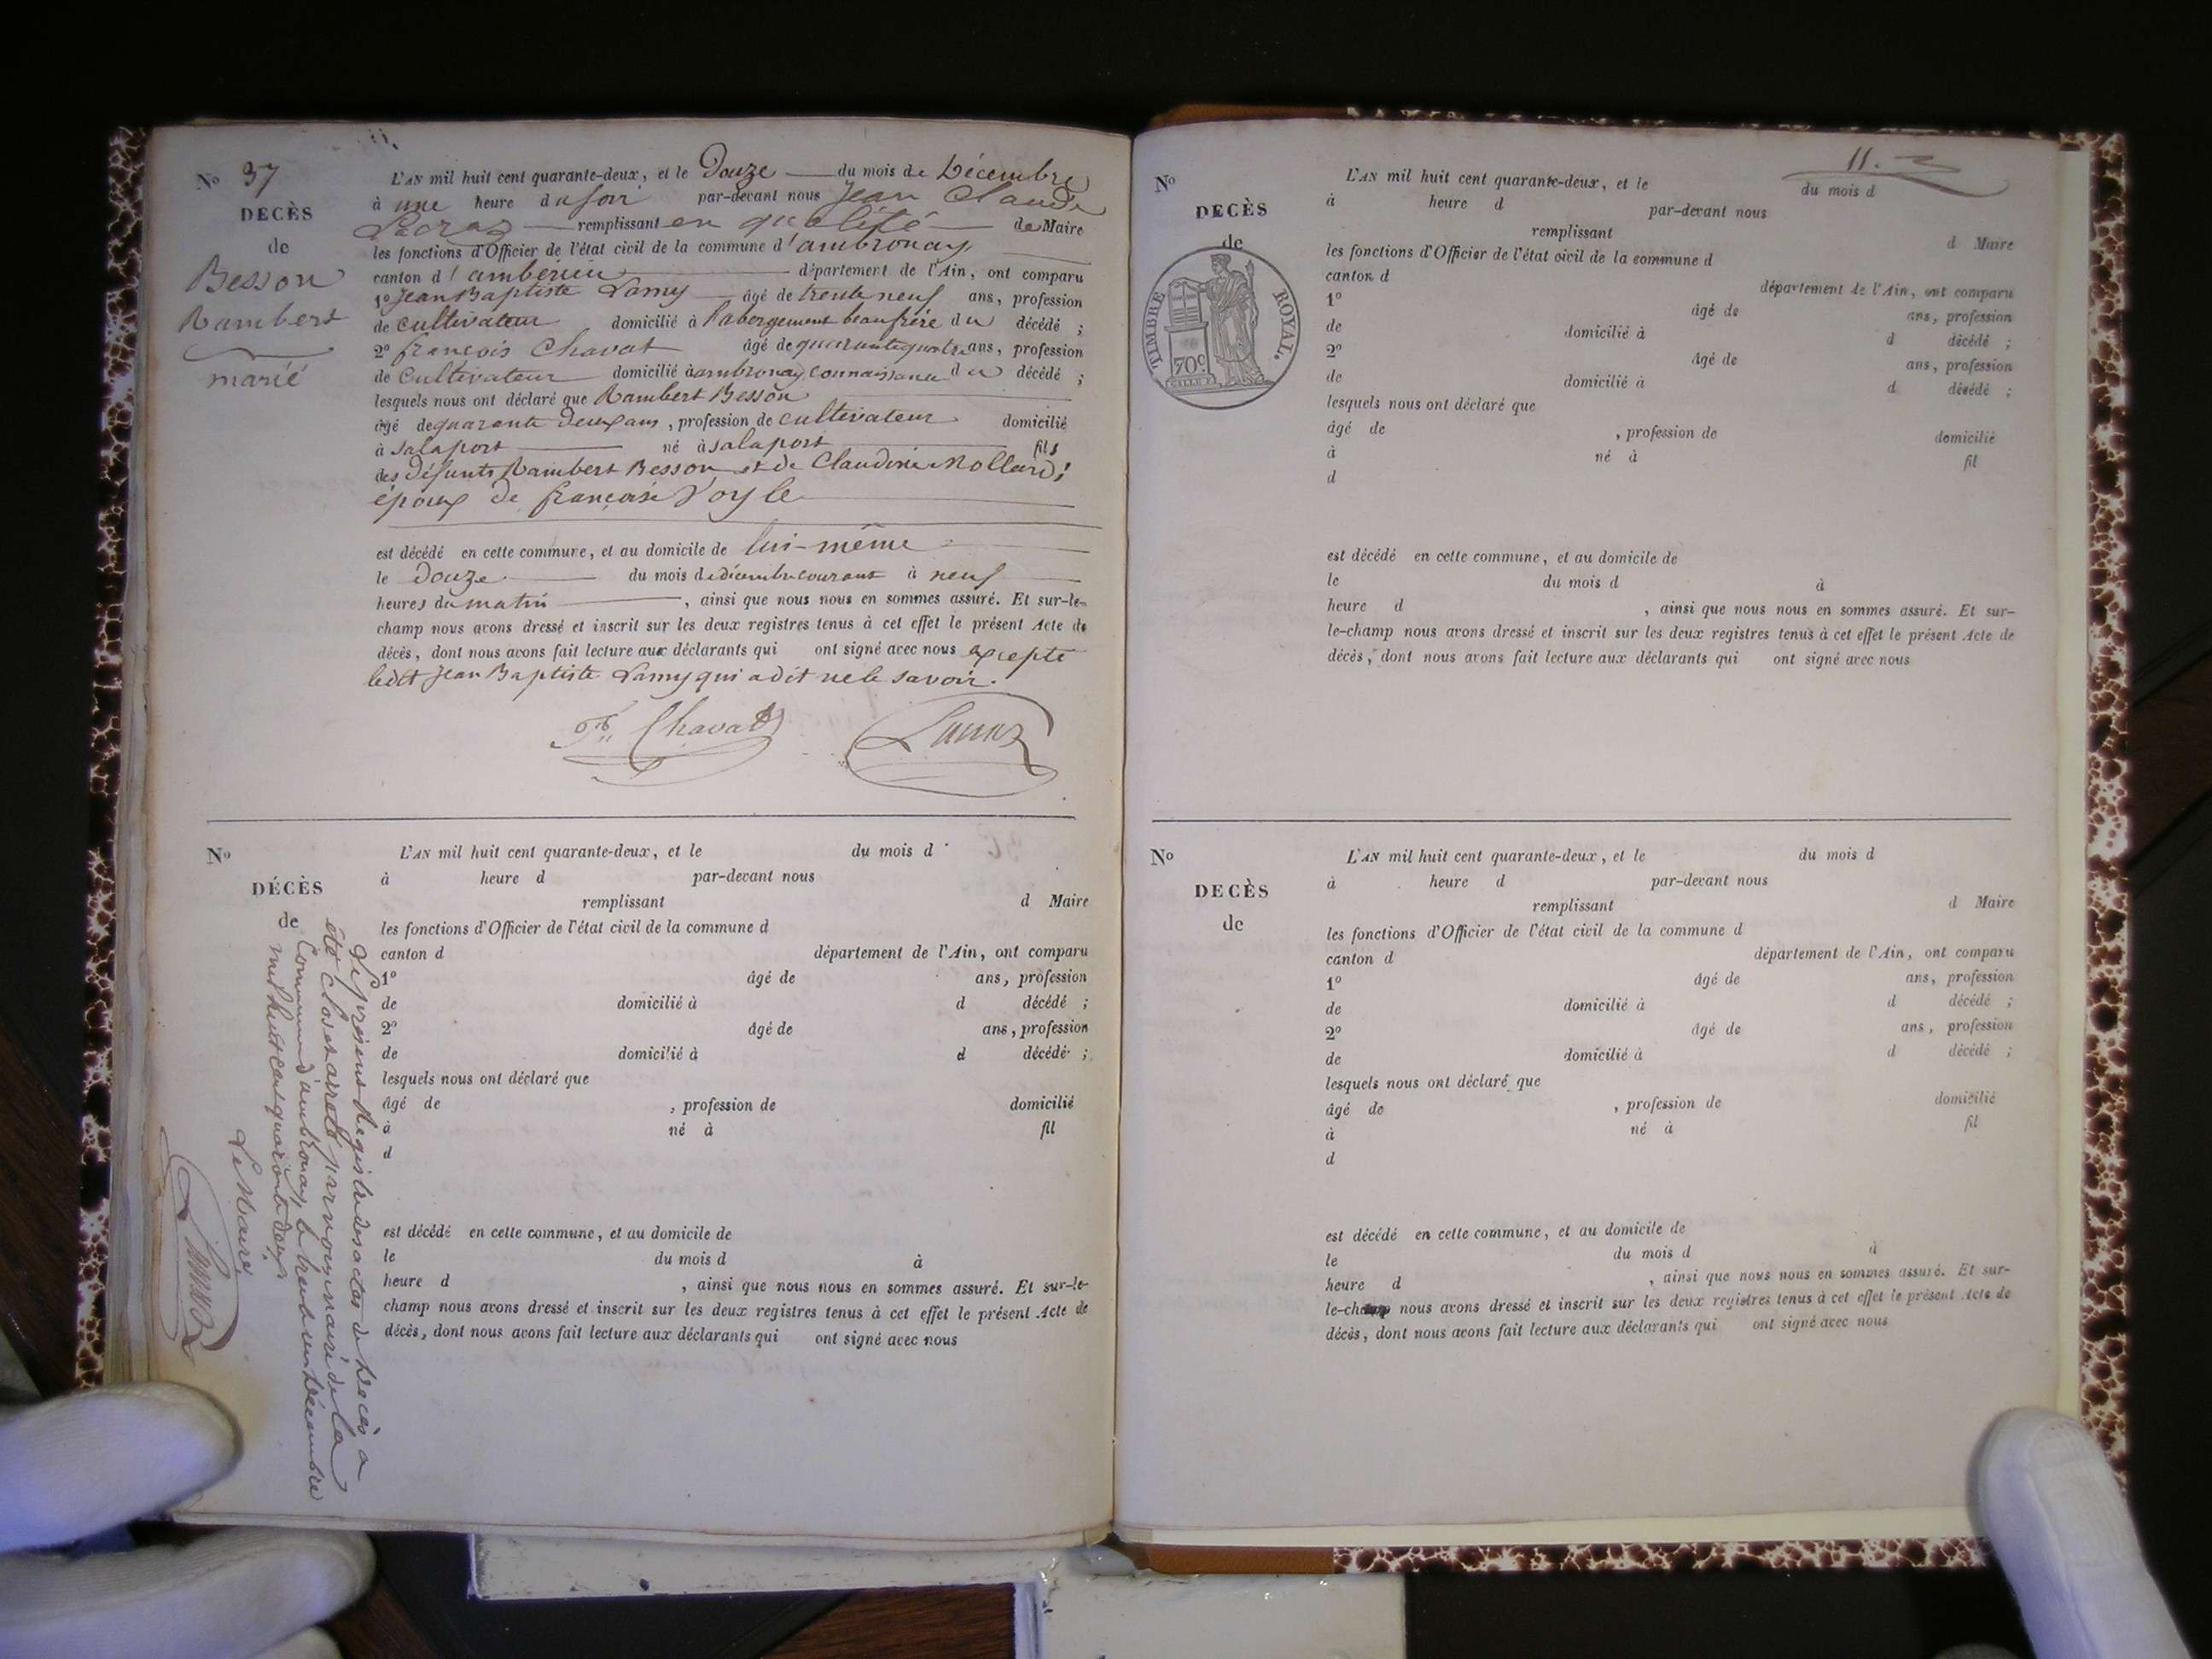 N° 37
DECÈS
de
Besson
Rambert
marié
L'AN mil huit cent quarante-deux, et le Douze du mois de Décembre
à une heure du soir par-devant nous Jean Claude
remplissant en qualité de Maire
les fonctions d'Officier de l'état civil de la commune d'ambronay
canton d'ambérieu département de l'Ain, ont comparu
1° Jean Baptiste Lamy âgé de trente neuf ans, profession
de cultivateur domicilié à l'abergement beaufrère du décédé ;
2° françois Chavat âgé de quarante quatre ans, profession
de Cultivateur domicilié à ambronay, connaissance du décédé ;
lesquels nous ont déclaré que Rambert Besson
âgé de quarante deux ans, profession de cultivateur domicilié
à salaport né à salaport fils
des défunts Rambert Besson et de Claudine Mollard;
époux de françoise Voyle
est décédé en cette commune, et au domicile de lui-même
le Douze du mois de décembre courant à neuf
heures du matin, ainsi que nous nous en sommes assuré. Et sur-le-
champ nous avons dressé et inscrit sur les deux registres tenus à cet effet le présent Acte de
décès, dont nous avons fait lecture aux déclarants qui ont signé avec nous excepté
ledit Jean Baptiste Lamy qui a dit ne le savoir.
Fs Chavat
N°
DÉCÈS
de
L'AN mil huit cent quarante-deux, et le du mois d
à heure d par-devant nous
remplissant d Maire
les fonctions d'Officier de l'état civil de la commune d
canton d département de l'Ain, ont comparu
1° âgé de ans, profession
de domicilié à d décédé ;
2° âgé de ans, profession
de domicilié à d décédé ;
lesquels nous ont déclaré que
âgé de , profession de domicilié
à né à fil
d
est décédé en cette commune, et au domicile de
le du mois d à
heure d , ainsi que nous nous en sommes assuré. Et sur-le-
champ nous avons dressé et inscrit sur les deux registres tenus à cet effet le présent Acte de
décès, dont nous avons fait lecture aux déclarants qui ont signé avec nous
Le présent Registre des actes de Decès a
été Clos et arreté par nous maire de la
Commune d'ambronay le trente un Décembre
mil huit cent quarante deux
Le Maire
11.
N°
DECÈS
de
TIMBRE ROYAL.
70c
L'AN mil huit cent quarante-deux, et le du mois d
à heure d par-devant nous
remplissant d Maire
les fonctions d'Officier de l'état civil de la commune d
canton d département de l'Ain, ont comparu
1° âgé de ans, profession
de domicilié à d décédé ;
2° âgé de ans, profession
de domicilié à d décédé ;
lesquels nous ont déclaré que
âgé de , profession de domicilié
à né à fil
d
est décédé en cette commune, et au domicile de
le du mois d à
heure d , ainsi que nous nous en sommes assuré. Et sur-
le-champ nous avons dressé et inscrit sur les deux registres tenus à cet effet le présent Acte de
décès, dont nous avons fait lecture aux déclarants qui ont signé avec nous
N°
DECÈS
de
L'AN mil huit cent quarante-deux, et le du mois d
à heure d par-devant nous
remplissant d Maire
les fonctions d'Officier de l'état civil de la commune d
canton d département de l'Ain, ont comparu
1° âgé de ans, profession
de domicilié à d décédé ;
2° âgé de ans, profession
de domicilié à d décédé ;
lesquels nous ont déclaré que
âgé de , profession de domicilié
à né à fil
d
est décédé en cette commune, et au domicile de
le du mois d à
heure d , ainsi que nous nous en sommes assuré. Et sur-
le-champ nous avons dressé et inscrit sur les deux registres tenus à cet effet le présent Acte de
décès, dont nous avons fait lecture aux déclarants qui ont signé avec nous